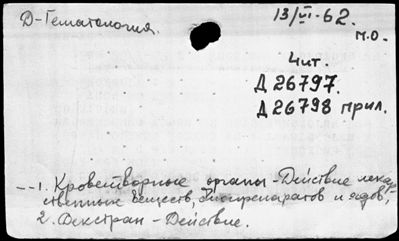 Д-Гематология.
13/VI-62.
м.о.
Чит.
Д 26797.
Д 26798 прил.
--1. Кроветворные органы-Действие лекар-
ственных веществ, биопрепаратов и ядов,
2. Декстран - Действие.